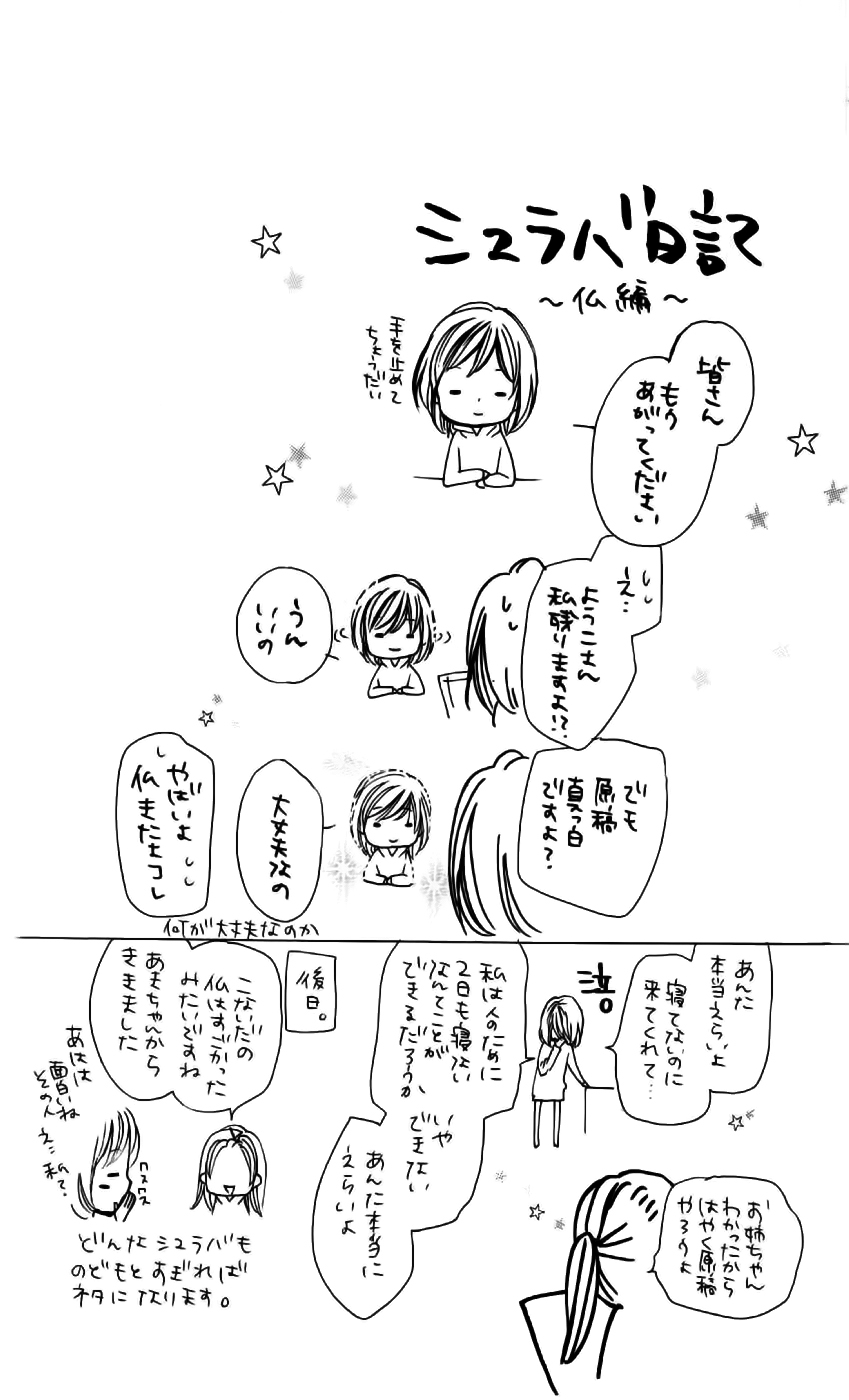 シュラバ日記
～仏編～
皆さん
もう
あがってください
手を止めて
ちょうだい
え…
ようこさん
私残りますよ!?
うん
いいの
でも
原稿
真っ白
ですよ?
大丈夫なの
やばいよ
仏きたよコレ
何が大丈夫なのか
あんた
本当えらいよ
寝てないのに
来てくれて…
泣。
お姉ちゃん
わかったから
はやく原稿
やろうよ
私は人のために
2日も寝ない
なんてことが
できるだろうか、
いや
できない
あんた本当に
えらいよ
後日。
こないだの
仏はすごかった
みたいですね
あまちゃんから
ききました
あはは
面白いね
その人
え…私?
クスクス
どんなシュラバも
のどもとすぎれば
ネタになります。